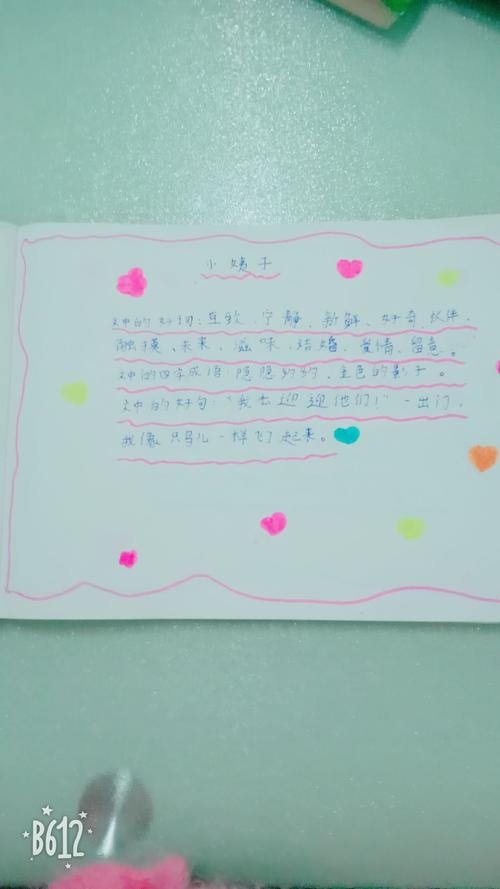 小姨子
文中的好词：互欺、宁静、新鲜、好奇、伙伴、
触摸、未来、滋味、结婚、爱情、留意。
文中的四字成语：隐隐约约、金色的影子。
文中的好句："我去迎迎他们！"一出门，
我像只鸟儿一样飞了起来。
B612